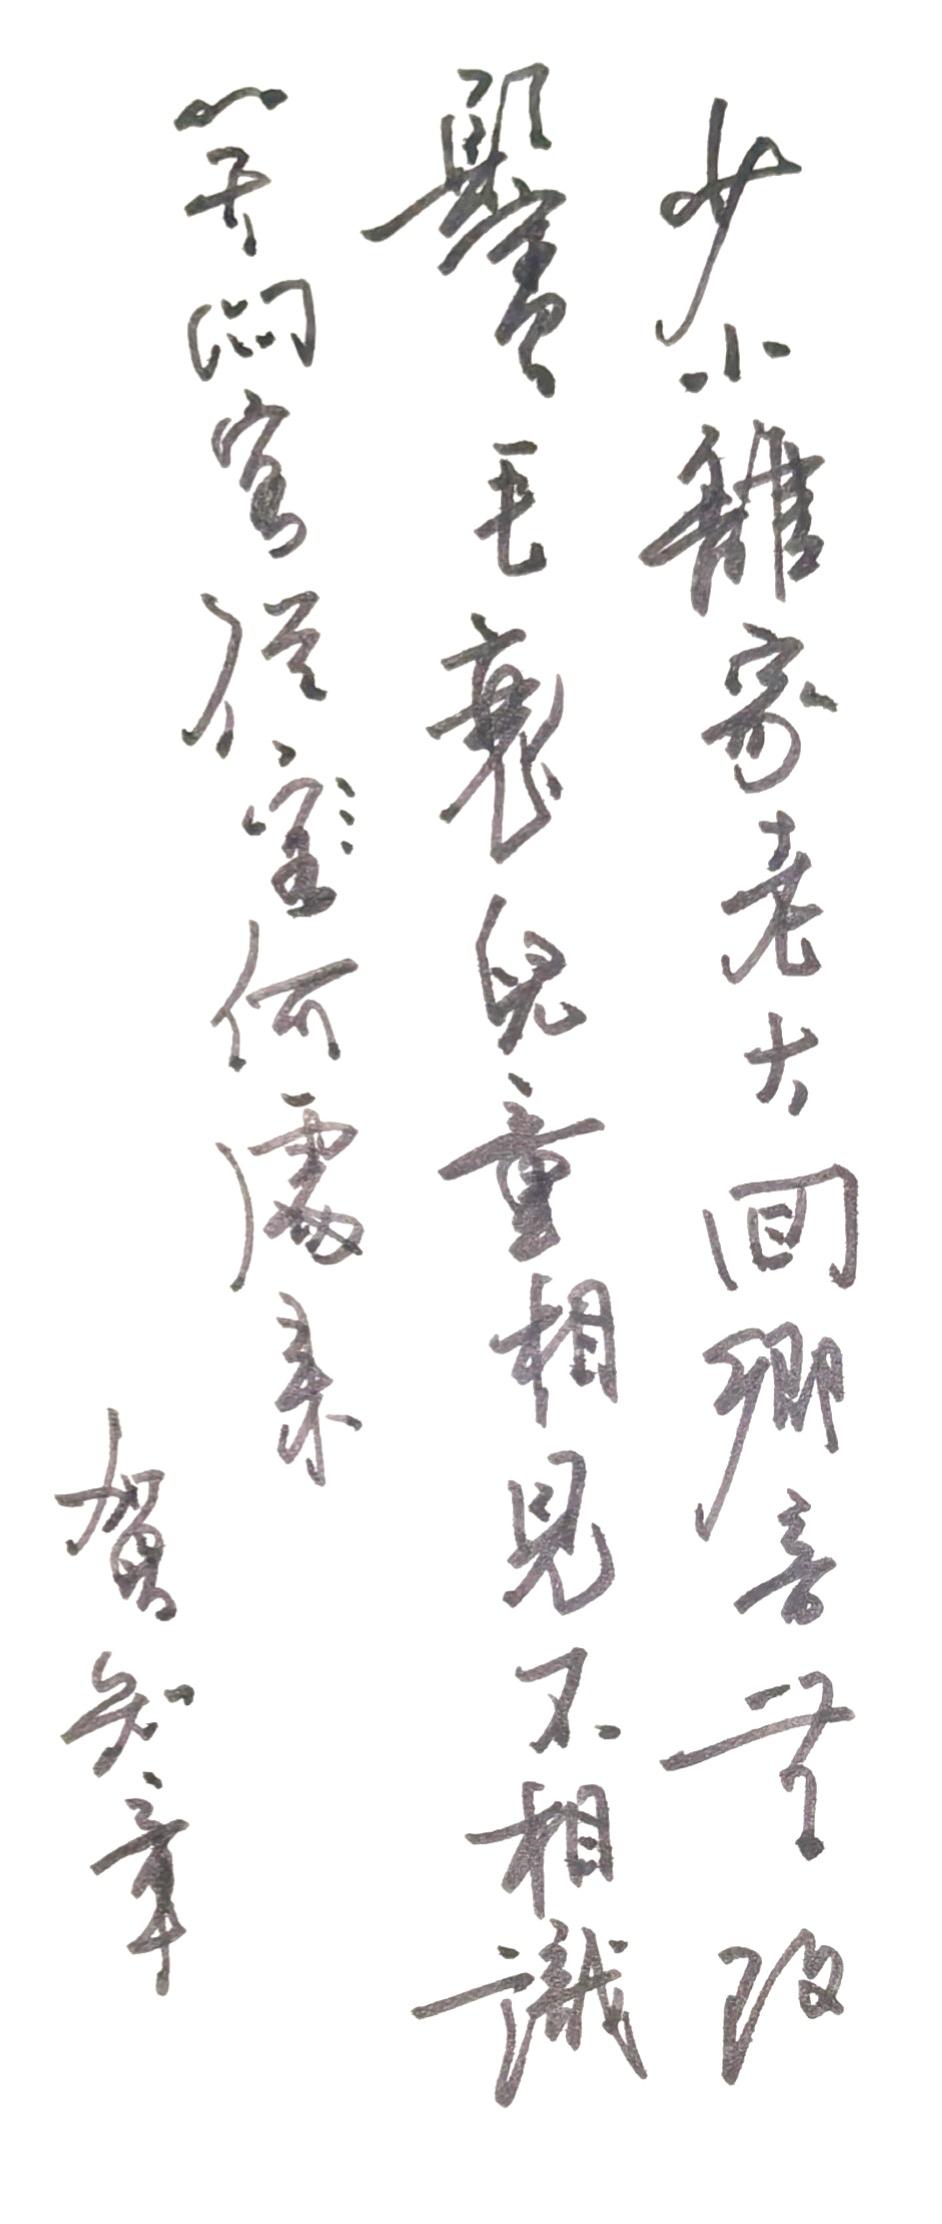 少小離家老大回鄉音無改
鬢毛衰兒童相見不相識
笑問客從何處來
賀知章